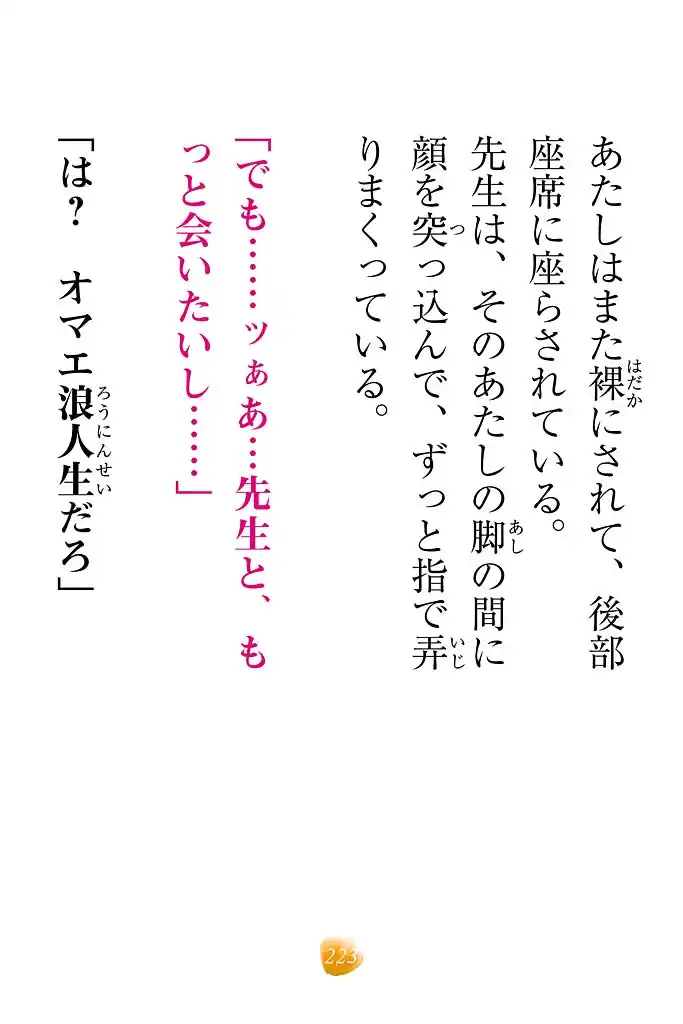 あたしはまた裸にされて、後部
座席に座らされている。
先生は、そのあたしの脚の間に
顔を突っ込んで、ずっと指で弄
りまくっている。
「でも……ッぁあ…先生と、も
っと会いたいし……」
「は？　オマエ浪人生だろ」
223